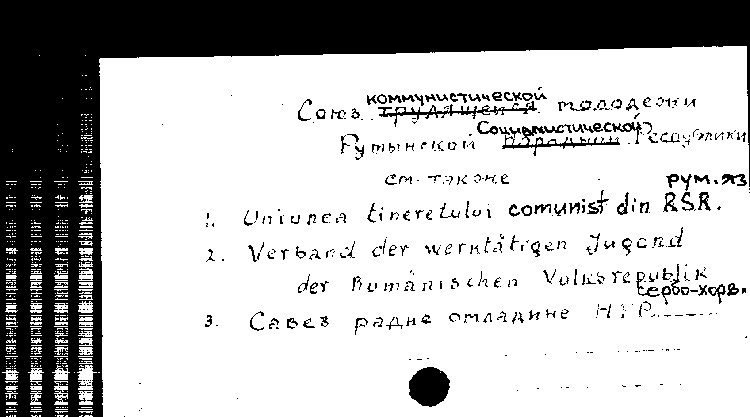 коммунистической
Союз трудящейся молодежи
Социалистической
Румынской Народной Республики
см. также
рум. яз
1. Uniunea tineretului comunist din RSR.
2. Verband der werktätigen Jugend
der Rumänischen Volksrepublik
сербо-хорв.
3. Савез радне омладине НРР